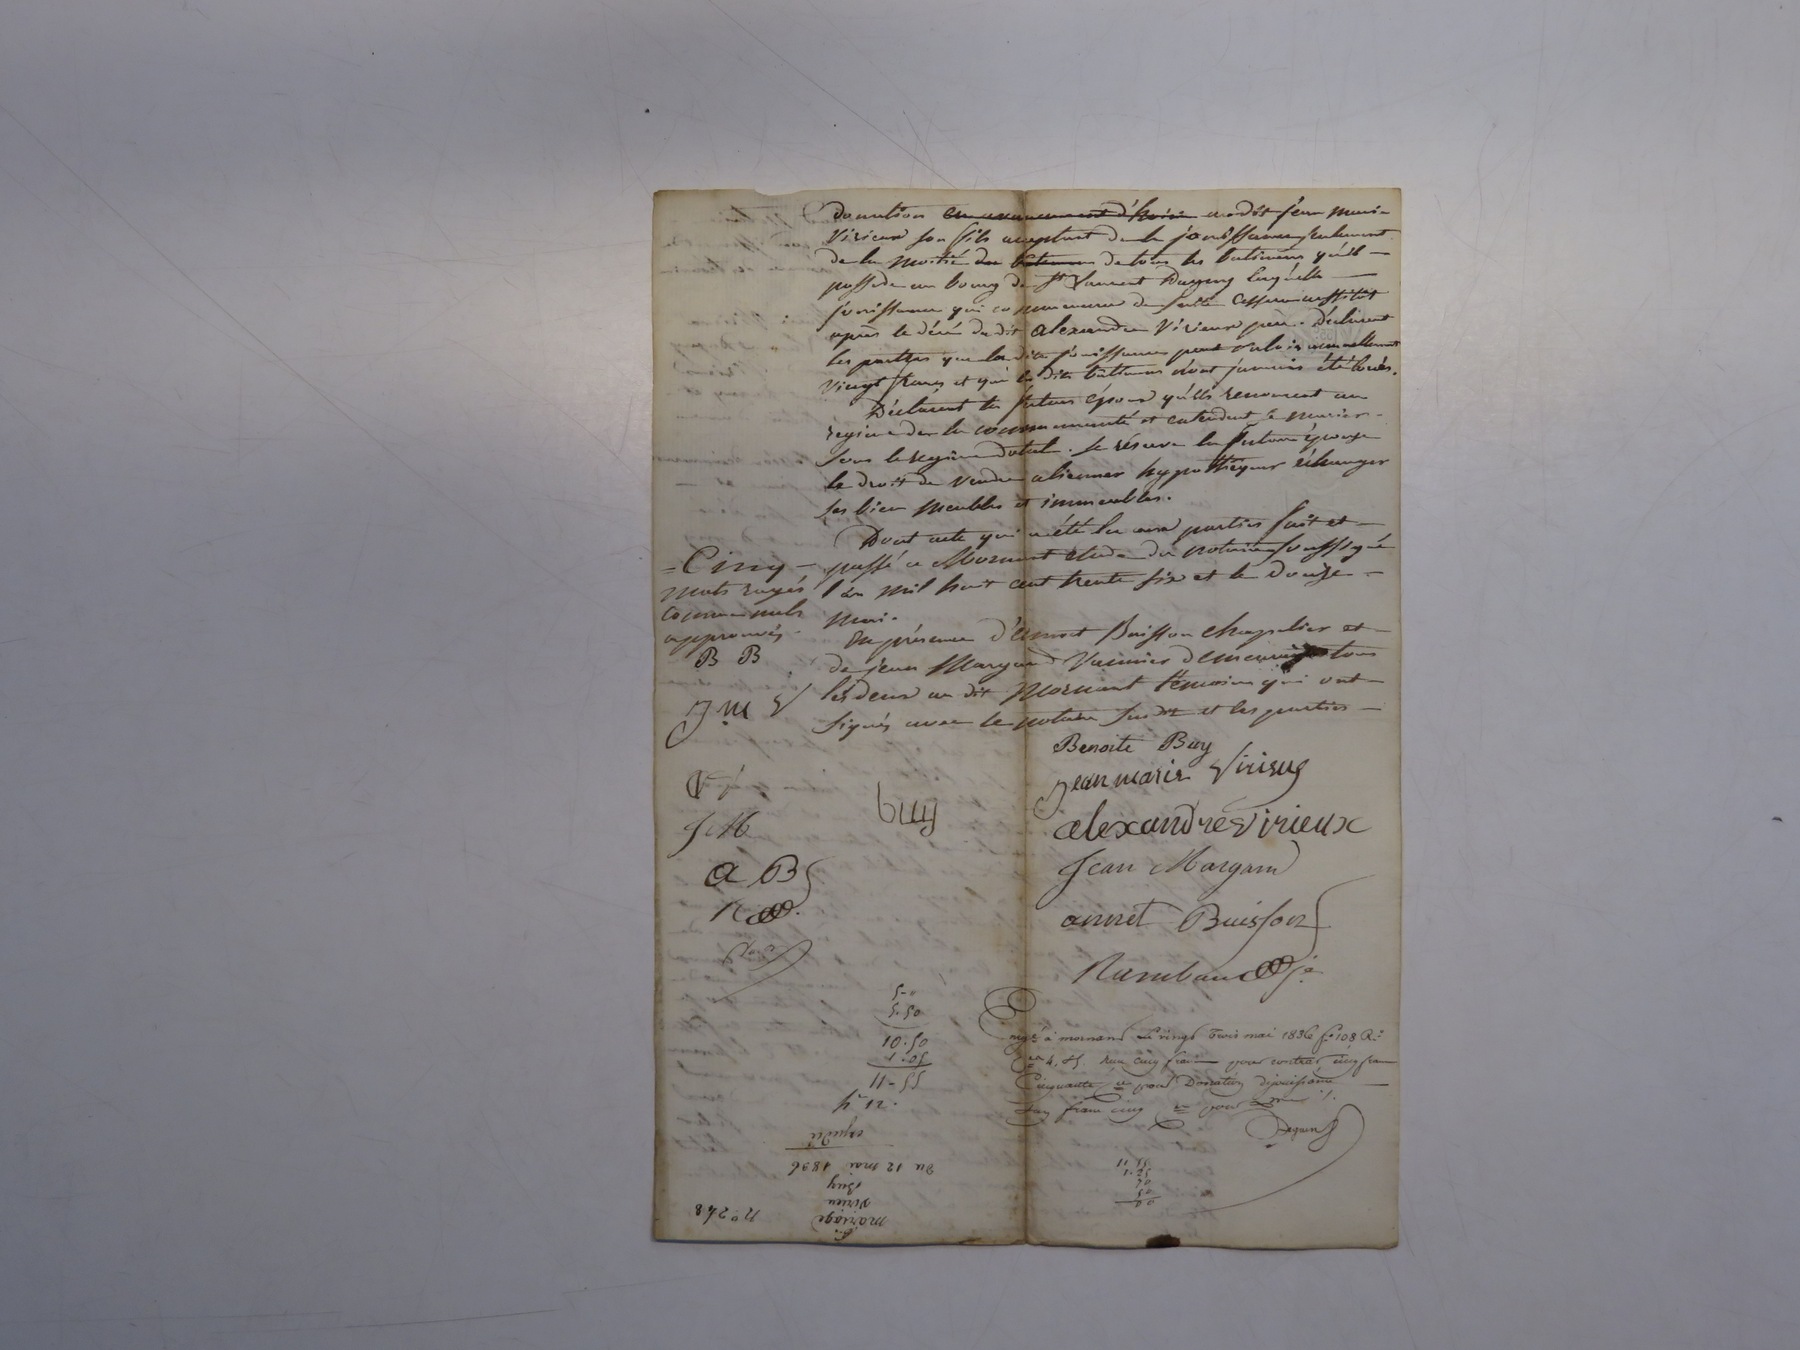 donation en avancement d'hoirie audit Jean Marie
Virieux son fils acceptant de la jouissance seulement
de la moitié des batimens de tous les batimens qu'il
possède au bourg de St Laurent Dagny laquelle
jouissance qui commencera de suite cessera aussitôt
après le décés dudit alexandre Virieux père. Déclarent
les parties que la dite jouissance peut valoir annuellement
vingt francs et que les dits batimens n'ont jamais été loués.
Déclarent les futurs époux qu'ils renoncent au
regime de la communauté et entendent se marier
sous le regime dotal. Se réserve la future épouse
le droit de vendre aliener hypothéquer échanger
ses bien meubles et immeubles.
Dont acte qui a été lu aux parties fait et
passé a Mornant etude du notaire soussigné
l'an mil huit cent trente six et le douze
mai.
En présence d'annet Buisson chapelier et
de jean Margand Vannier demeurant tous
les deux au dit Mornant temoins qui ont
signés avec le notaire susdit et les parties
= Cinq
mots rayés
comme nuls
approuvés.
B B
J M V
J M
A B
R
buy
Benoite Buy
jean marie Virieux
alexandre virieux
Jean Margand
annet Buisson
Rambaud je
Engé à mornant Le vingt trois mai 1836 fo 108 Ro
Ces 4. et 5. Reçu cinq francs pour contrat cinq francs
Cinquante ces pour Donation de jouissance
Un franc cinq ces pour
5-"
5.50
10.50
1.05
11-55
12.
expédié
Du 12 mai 1836
Buy
Virieu
mariage
n° 248